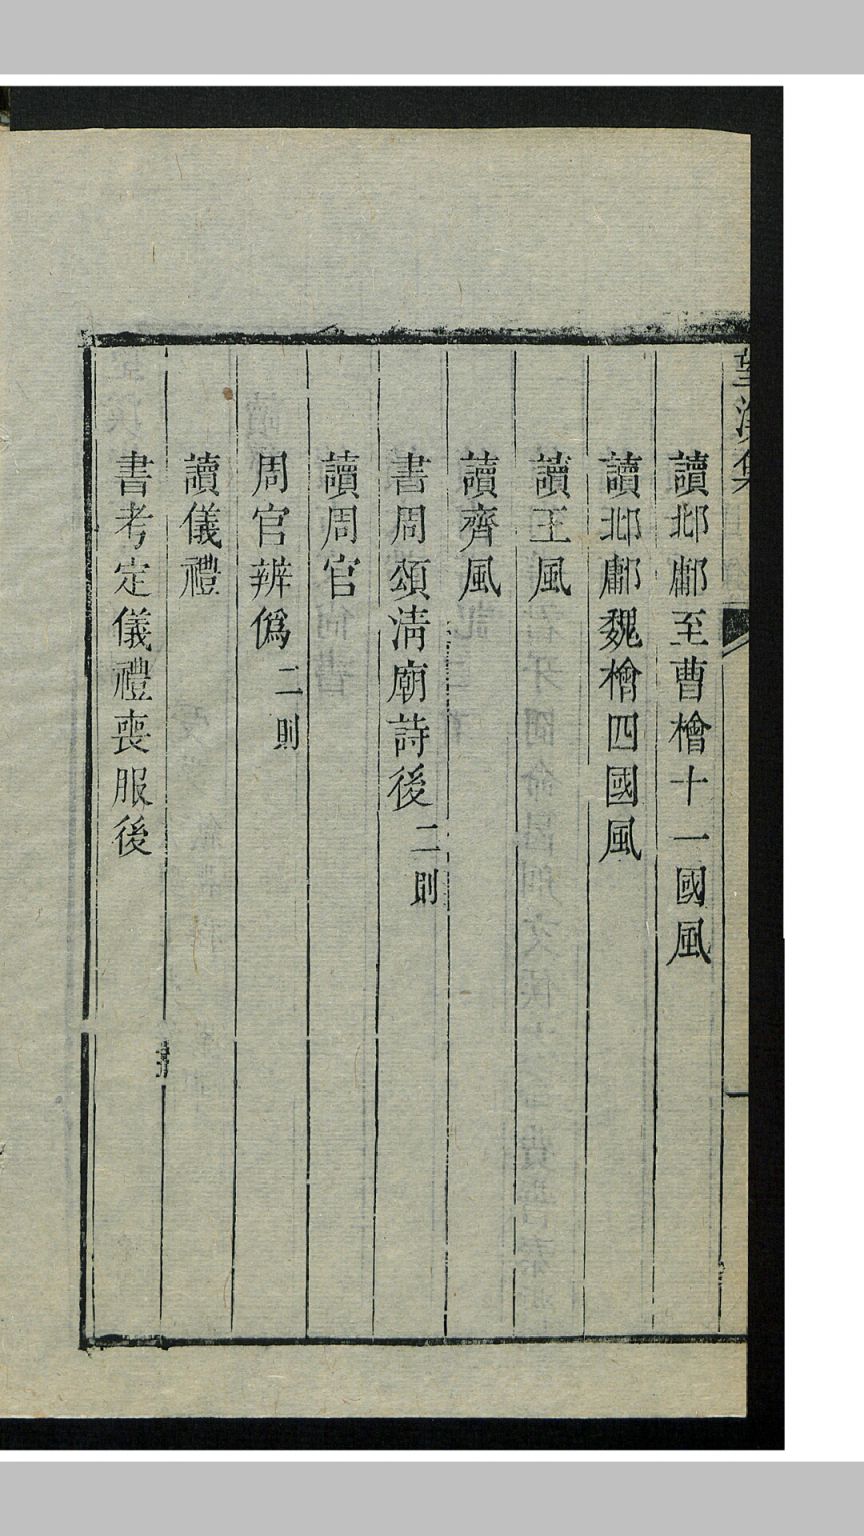 望溪集
讀邶鄘至曹檜十一國風
讀邶鄘魏檜四國風
讀王風
讀齊風
書周頌清廟詩後二則
讀周官
周官辨僞二則
讀儀禮
書考定儀禮喪服後